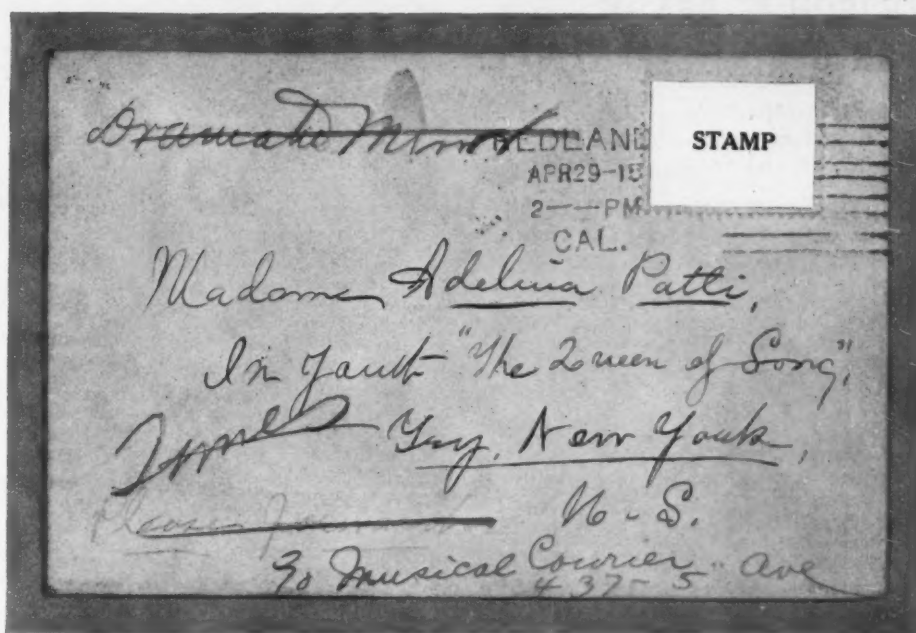 Dramatic Mirror
REDLAND
APR 29-15
2 — PM
CAL.
STAMP
Madame Adelina Patti,
In Youth "The Queen of Song",
Times
New York,
U-S.
Please
c/o Musical Courier
437-5" Ave